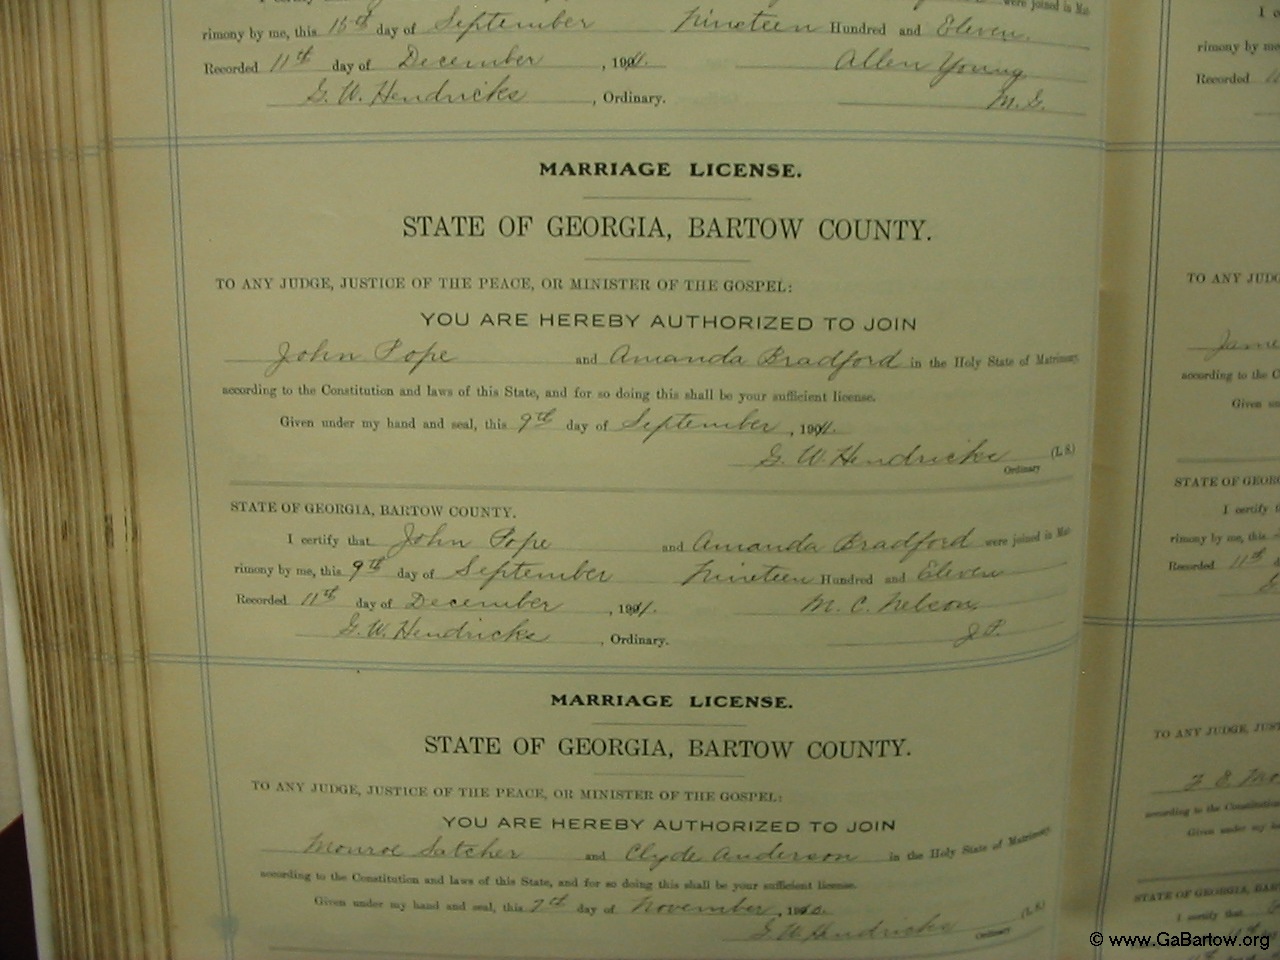 I certify were joined in Mat-
rimony by me, this 15th day of September Nineteen Hundred and Eleven.
Recorded 11th day of December, 1911. Allen Young
G. W. Hendricks, Ordinary. M. G.
MARRIAGE LICENSE.
STATE OF GEORGIA, BARTOW COUNTY.
TO ANY JUDGE, JUSTICE OF THE PEACE, OR MINISTER OF THE GOSPEL:
YOU ARE HEREBY AUTHORIZED TO JOIN
John Pope and Amanda Bradford in the Holy State of Matrimony
according to the Constitution and laws of this State, and for so doing this shall be your sufficient license.
Given under my hand and seal, this 9th day of September, 1911.
G. W. Hendricks (L. S.)
Ordinary
STATE OF GEORGIA, BARTOW COUNTY.
I certify that John Pope and Amanda Bradford were joined in Mat-
rimony by me, this 9th day of September Nineteen Hundred and Eleven
Recorded 11th day of December, 1911. M. C. Nelson,
G. W. Hendricks, Ordinary. J P.
MARRIAGE LICENSE.
STATE OF GEORGIA, BARTOW COUNTY.
TO ANY JUDGE, JUSTICE OF THE PEACE, OR MINISTER OF THE GOSPEL:
YOU ARE HEREBY AUTHORIZED TO JOIN
Monroe Satcher and Clyde Anderson in the Holy State of Matrimony
according to the Constitution and laws of this State, and for so doing this shall be your sufficient license.
Given under my hand and seal, this 7th day of November,
G. W. Hendricks (L. S.)
Ordinary
I c
rimony by me
Recorded
TO ANY JUDG
Jame
according to the C
Given un
STATE OF GEORG
I certify t
rimony by me, this
Recorded 11th d
G
TO ANY JUDGE, JUST
according to the Constitution
Given under my h
STATE OF GEORGIA, BAR
I certify that
© www.GaBartow.org